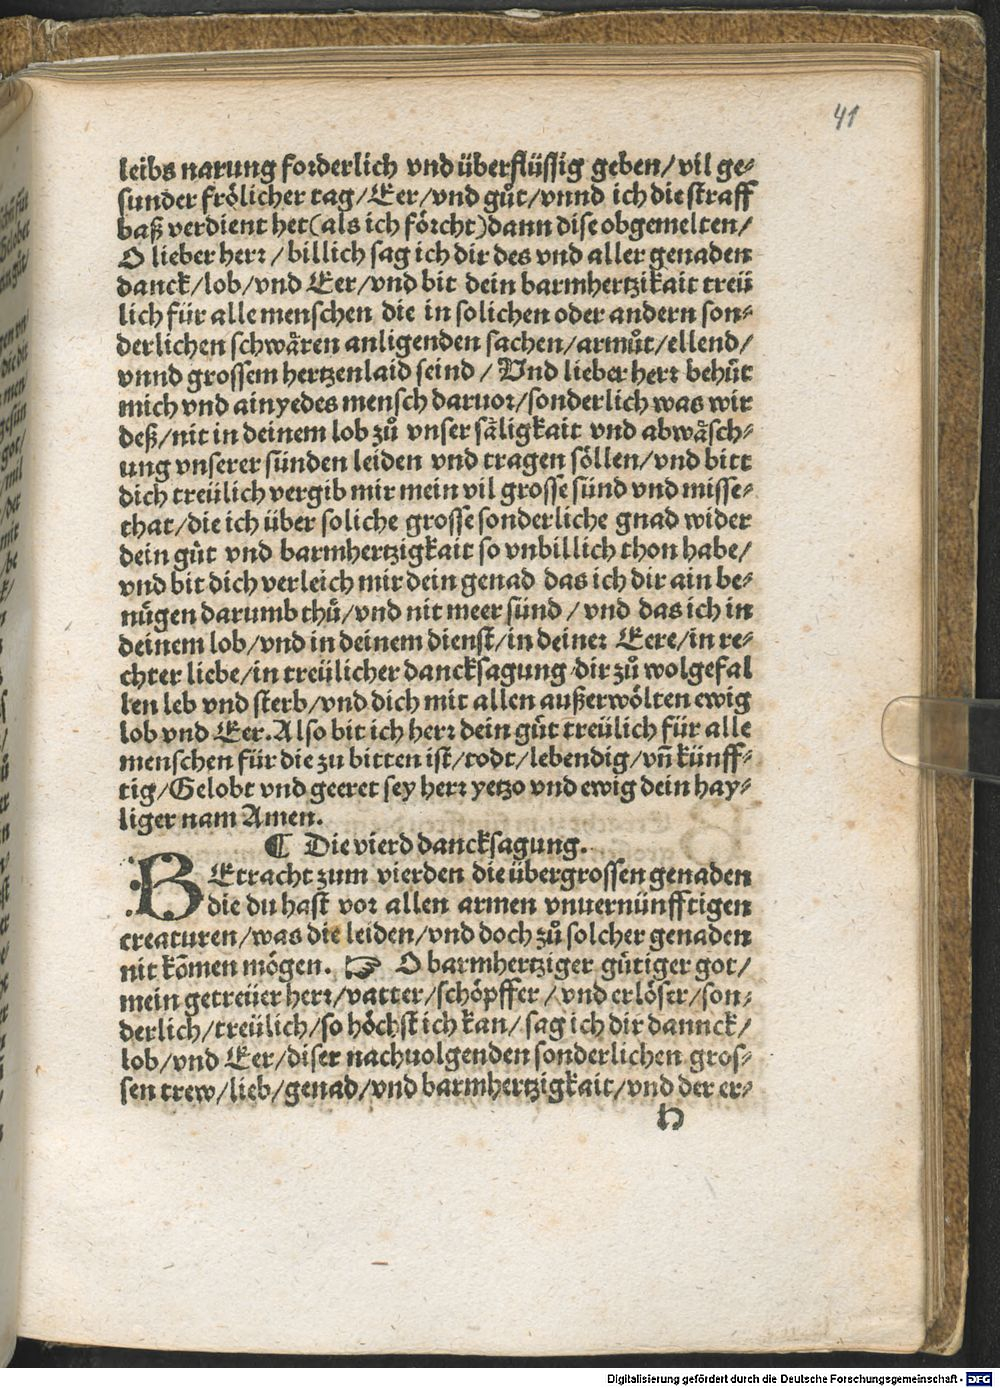 41
leibs narung forderlich vnd überflüssig geben/vil ge-
sunder frölicher tag/Eer/vnd gůt/vnnd ich die straff
baß verdient het(als ich förcht)dann dise obgemelten/
O lieber herr/billich sag ich dir des vnd aller genaden
danck/lob/vnd Eer/vnd bit dein barmhertzikait treü
lich für alle menschen die in solichen oder andern son-
derlichen schwären anligenden sachen/armůt/ellend/
vnnd grossem hertzenlaid seind/Vnd lieber herr behüt
mich vnd ain yedes mensch daruor/sonderlich was wir
deß/nit in deinem lob zů vnser säligkait vnd abwäsch-
ung vnserer sünden leiden vnd tragen söllen/vnd bitt
dich treülich vergib mir mein vil grosse sünd vnd misse-
that/die ich über soliche grosse sonderliche gnad wider
dein güt vnd barmhertzigkait so vnbillich thon habe/
vnd bit dich verleich mir dein genad das ich dir ain be-
nügen darumb thů/vnd nit meer sünd/vnd das ich in
deinem lob/vnd in deinem dienst/in deiner Eere/in re-
chter liebe/in treülicher dancksagung dir zů wolgefal
len leb vnd sterb/vnd dich mit allen außerwölten ewig
lob vnd Eer.Also bit ich herr dein güt treülich für alle
menschen für die zu bitten ist/todt/lebendig/vñ künff-
tig/Gelobt vnd geeret sey herr yetzo vnd ewig dein hay-
liger nam Amen.
¶ Die vierd dancksagung.
BEtracht zum vierden die übergrossen genaden
die du hast vor allen armen vnuernünfftigen
creaturen/was die leiden/vnd doch zů solcher genaden
nit kõmen mögen. ☞ O barmhertziger gütiger got/
mein getreüer herr/vatter/schöpffer/vnd erlöser/son-
derlich/treülich/so höchst ich kan/sag ich dir dannck/
lob/vnd Eer/diser nachuolgenden sonderlichen gros-
sen trew/lieb/genad/vnd barmhertzigkait/vnd der er-
h
Digitalisierung gefördert durch die Deutsche Forschungsgemeinschaft - DFG